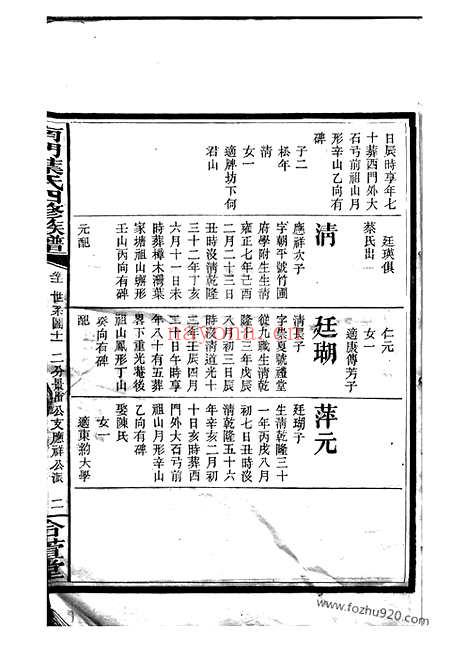 日辰時享年七
十葬西門外大
石弓前祖山月
形辛山乙向有
碑
子二
松年
清
女一
適牌坊下何
君山
廷瑛俱
蔡氏出
清
應祥次子
字朝平號竹圃
府學附生生清
雍正七年己酉
二月二十三日
丑時沒清乾隆
三十二年丁亥
六月十一日未
時葬樟木灣葉
家塘祖山蠏形
壬山丙向有碑
元配
仁元
女一
適庚傳芳子
廷瑚
清長子
字集夏號禮堂
從九職生清乾
隆十三年戊辰
八月初三日辰
時沒清道光十
二年壬辰四月
二十一日午時享
年八十有五葬
畧下重光菴後
祖山鳳形丁山
癸向有碑
配
萍元
廷瑚子
生清乾隆三十
一年丙戌八月
初七日丑時沒
清乾隆五十六
年辛亥二月初
十日亥時葬西
門外大石弓前
祖山月形辛山
乙向有碑
娶陳氏
女一
適東韵大學
南門葉氏四修族譜
世系圖十
二分景甫公支應祥公派
二
合萱堂
www.fozhu920.com